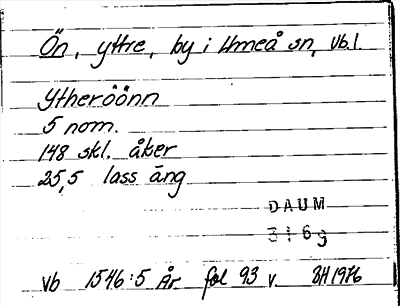 Ön, yttre, by i Umeå sn, Vb.l.
Ytheröönn
5 nom.
148 skl. åker
25,5 lass äng
DAUM
3169
Vb 1546:5 År fol 93 v. BH 1976